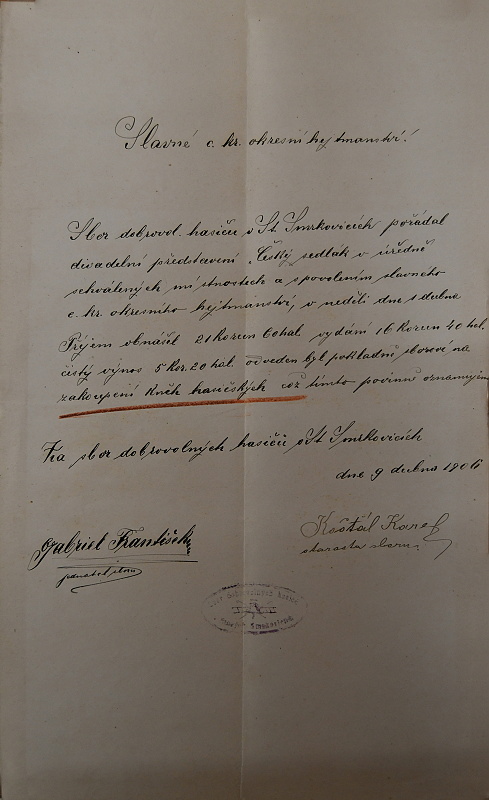 Slavné c. kr. okresní hejtmanství!
Sbor dobrovol. hasičů v St. Smrkovicích pořádal
divadelní představení „Český sedlák v úředně
schválených místnostech a s povolením slavneho
c. kr. okresního hejtmanství, v neděli dne 1 dubna
Příjem obnášel 21 korun 60 hal. vydání 16 korun 40 hal.
čistý výnos 5 kor. 20 hal. odveden byl pokladně sborové na
zakoupení knih hasičských což tímto povinně oznamujem
Za sbor dobrovolných hasičů v St Smrkovicích
dne 9 dubna 1906
Košťál Karel
starosta sboru
Gabriel František
jednatel sboru